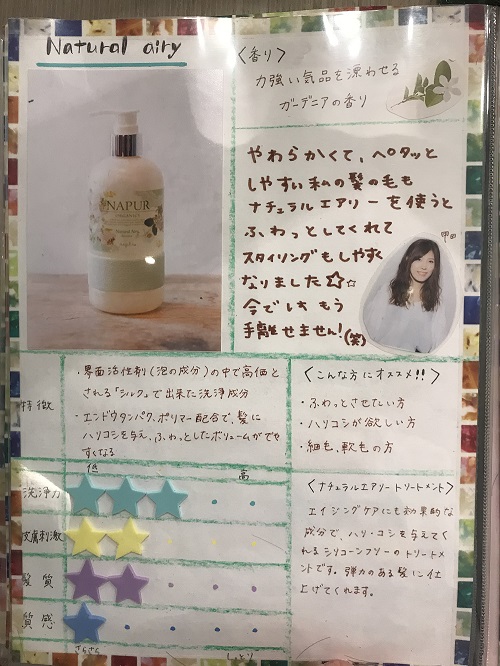 Natural airy
NAPUR
Natural Airy
〈香り〉
力強い気品を漂わせる
ガーデニアの香り
やわらかくて、ペタッと
しやすい私の髪の毛も
ナチュラルエアリーを使うと
ふわっとしてくれて
スタイリングもしやすく
なりました☆☆
今でしはもう
手離せません!(笑)
特徴
・界面活性剤(泡の成分)の中で高価と
される「シルク」で出来た洗浄成分
・エンドウタンパク、ポリマー配合で、髪に
ハリコシを与え、ふわっとしたボリュームがでや
すくなる
〈こんな方にオススメ!!〉
・ふわっとさせたい方
・ハリコシが欲しい方
・細毛、軟毛の方
低
高
洗浄力
皮膚刺激
髪質
質感
さらさら
しっとり
〈ナチュラルエアリートリートメント〉
エイジングケアにも効果的な
成分で、ハリ・コシを与えて
くれるシリコーンフリーのトリートメ
ントです。弾力のある髪に仕
上げてくれます。